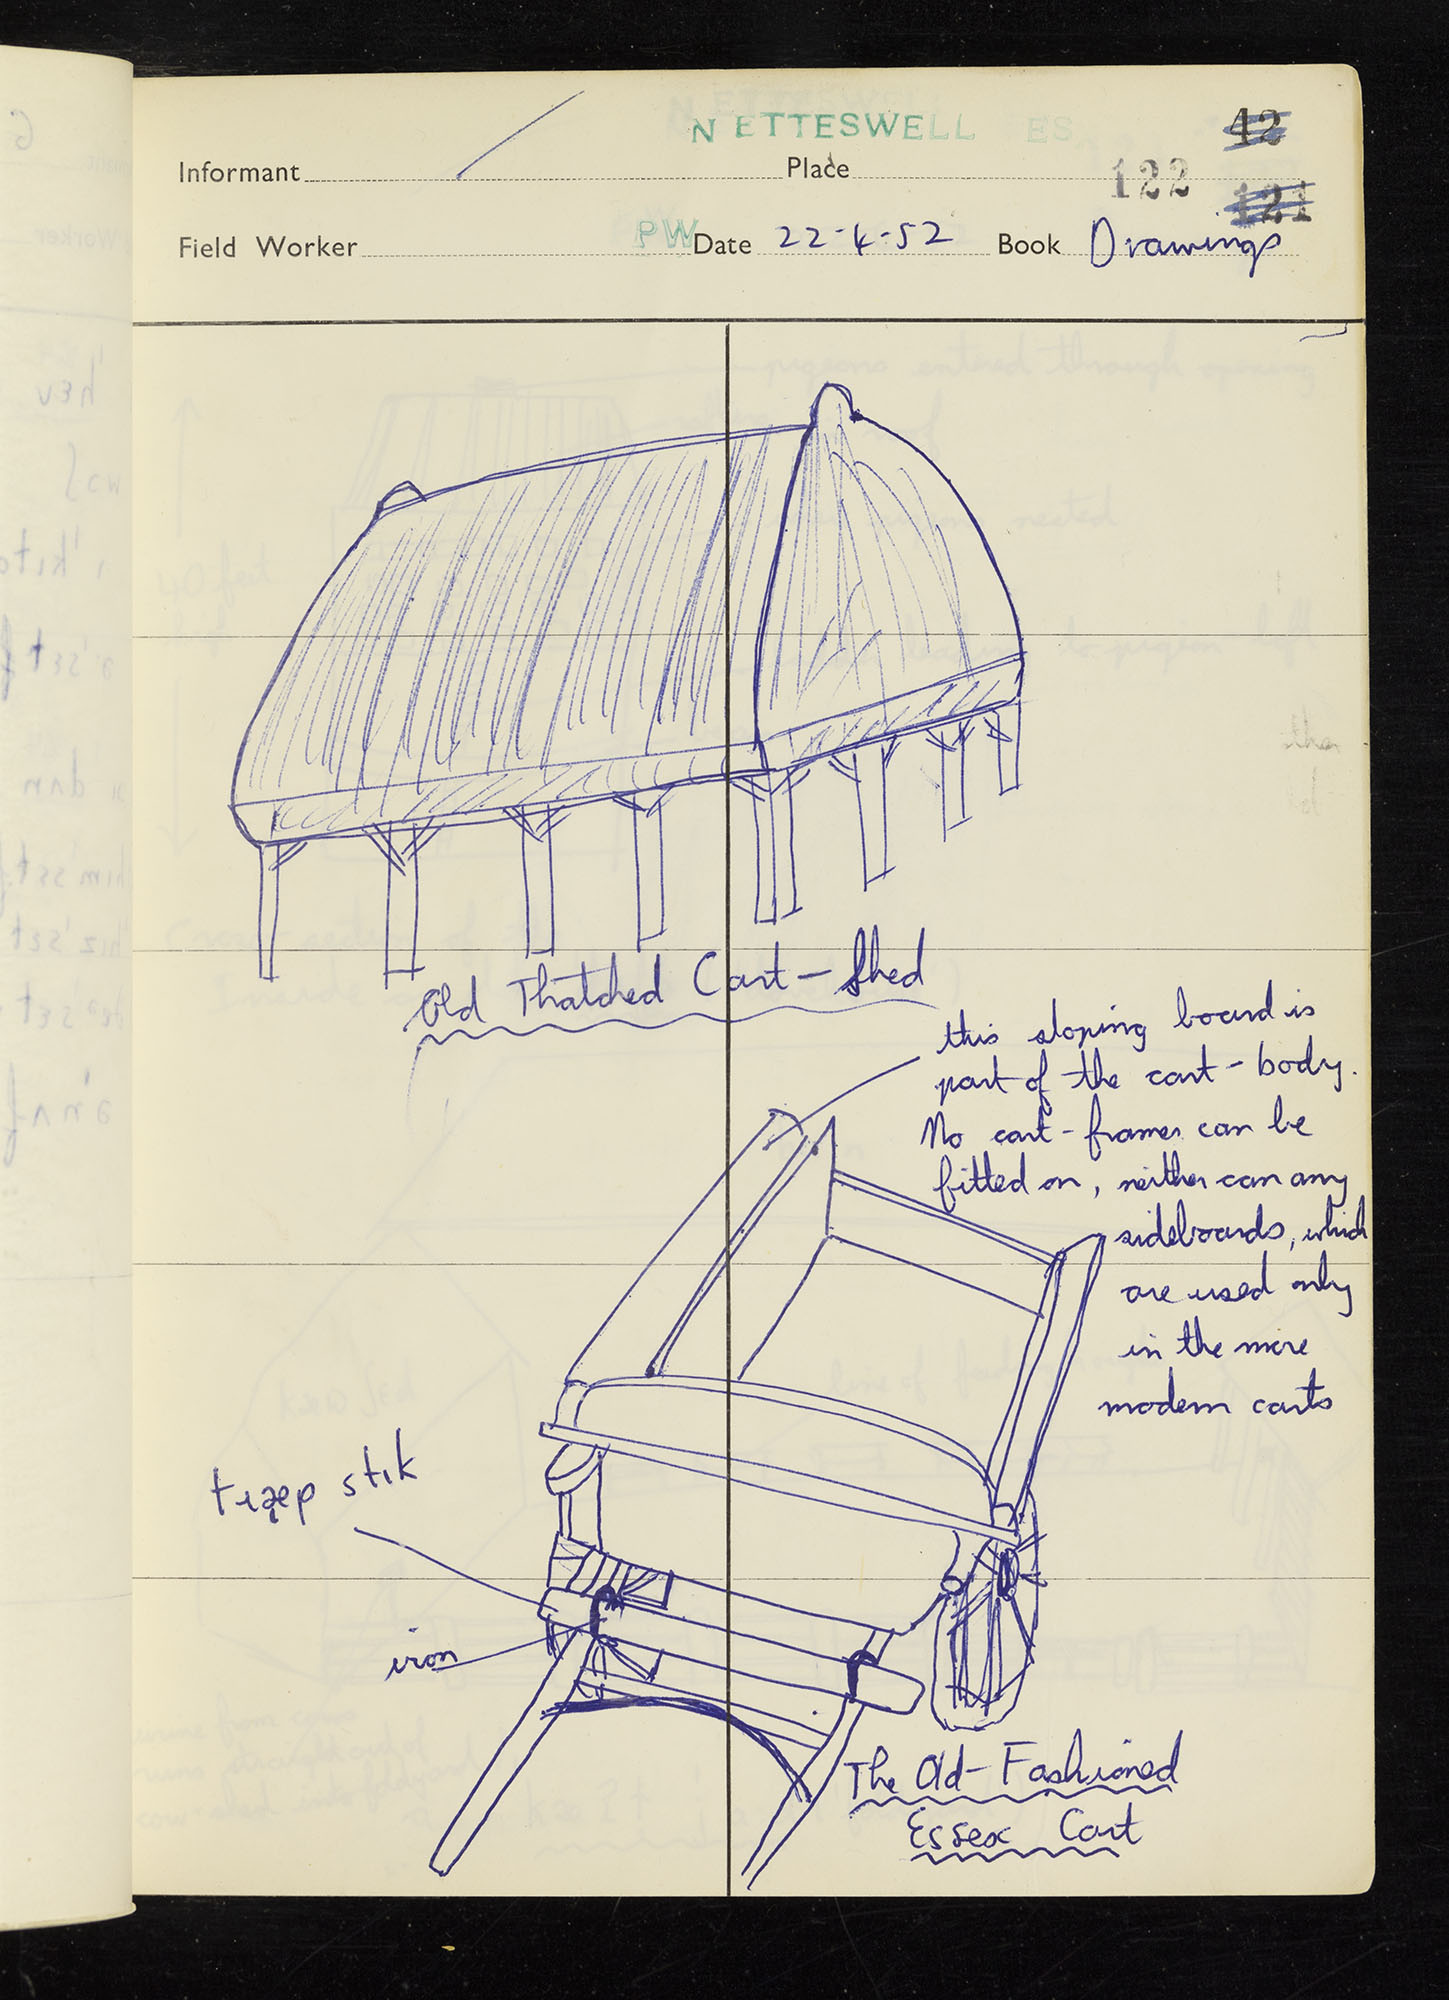 NETTESWELL ES
42
Informant
Place
122
121
Field Worker
PW
Date 22-4-52
Book Drawings
Old Thatched Cart-Shed
this sloping board is
part of the cart-body.
No cart-frames can be
fitted on, neither can any
sideboards, which
are used only
in the more
modern carts
stɩk
iron
The Old-Fashioned
Essex Cart